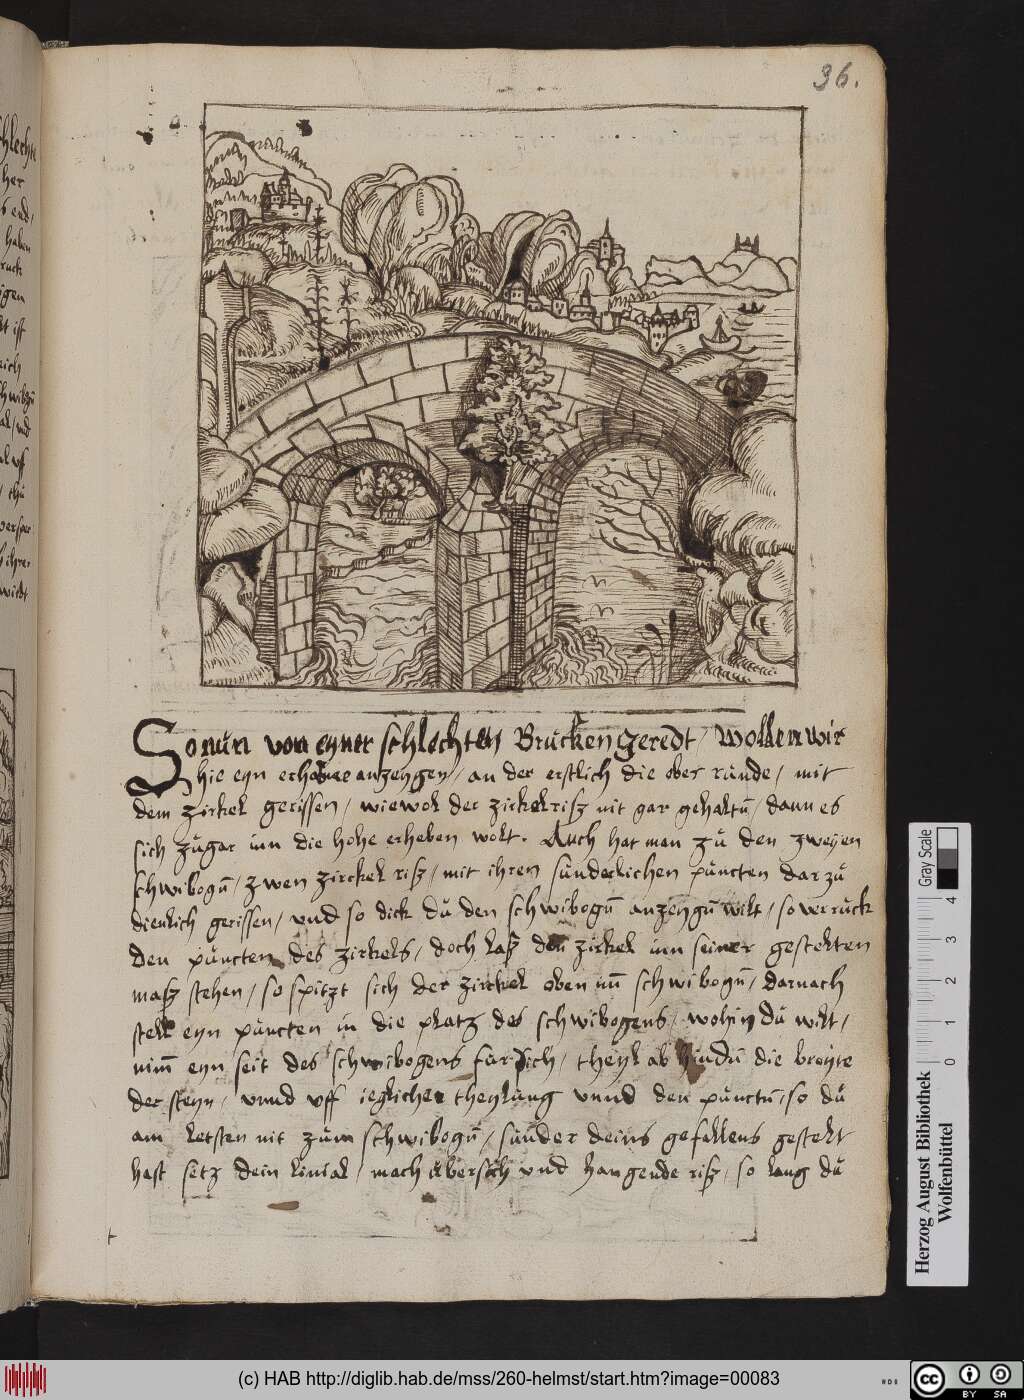 36.
So nún von eyner schlechten Brucken geredt / wollen wir
hie eyn erhobne anzeygen / an der erstlich die ober runde / mit
dem zirkel gerissen / wiewol der zirkelrisz nit gar gehaltñ / dann es
sich zúgar inn die hohe erheben wolt. Auch hat man zů den zweyen
schwibogñ / zwen zirckel risz / mit ihren sunderlichen puncten darzů
dienlich gerissen / vnd so dick dů den schwibogñ anzeygñ wilt / so verruck
den puncten des zirkels / doch lasz den zirkel inn seiner gestelten
masz stehen / so spitzt sich der zirckel oben im schwibogñ / darnach
stell eyn puncten in die platz des schwibogens / wohin dů wilt /
nim̄ eyn seit des schwibogens fur dich / theyl ab die breyte
der steyn / vnnd vff ieglicher theylung vnnd den punctñ / so dů
am letsten nit zum schwibogñ / sunder deins gefallens gestelt
hast setz dein linial / mach ubersich vnd hangende risz / so lang dů
schlecht
her
haben
ruck
igen
ist
Herzog August Bibliothek
Wolfenbüttel
Gray Scale
0 1 2 3 4
(c) HAB http://diglib.hab.de/mss/260-helmst/start.htm?image=00083
HAB
cc BY SA